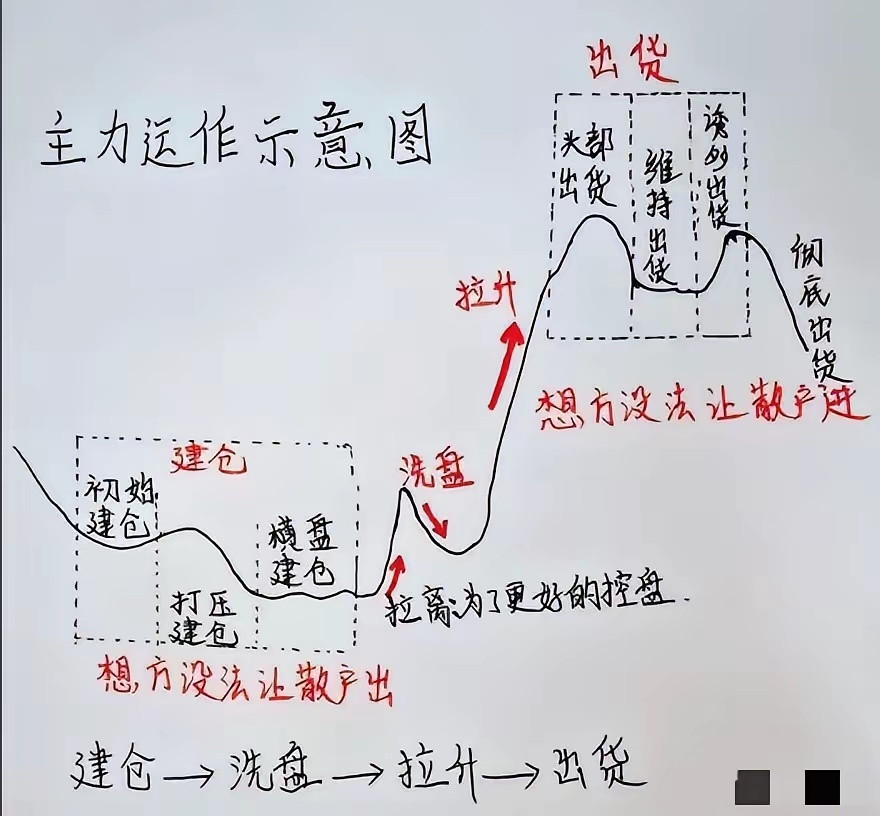 主力运作示意图
出货
头部出货
维持出货
诱多出货
彻底出货
拉升
想方设法让散户进
建仓
初始建仓
打压建仓
横盘建仓
洗盘
拉离为了更好的控盘.
想方设法让散户出
建仓→洗盘→拉升→出货